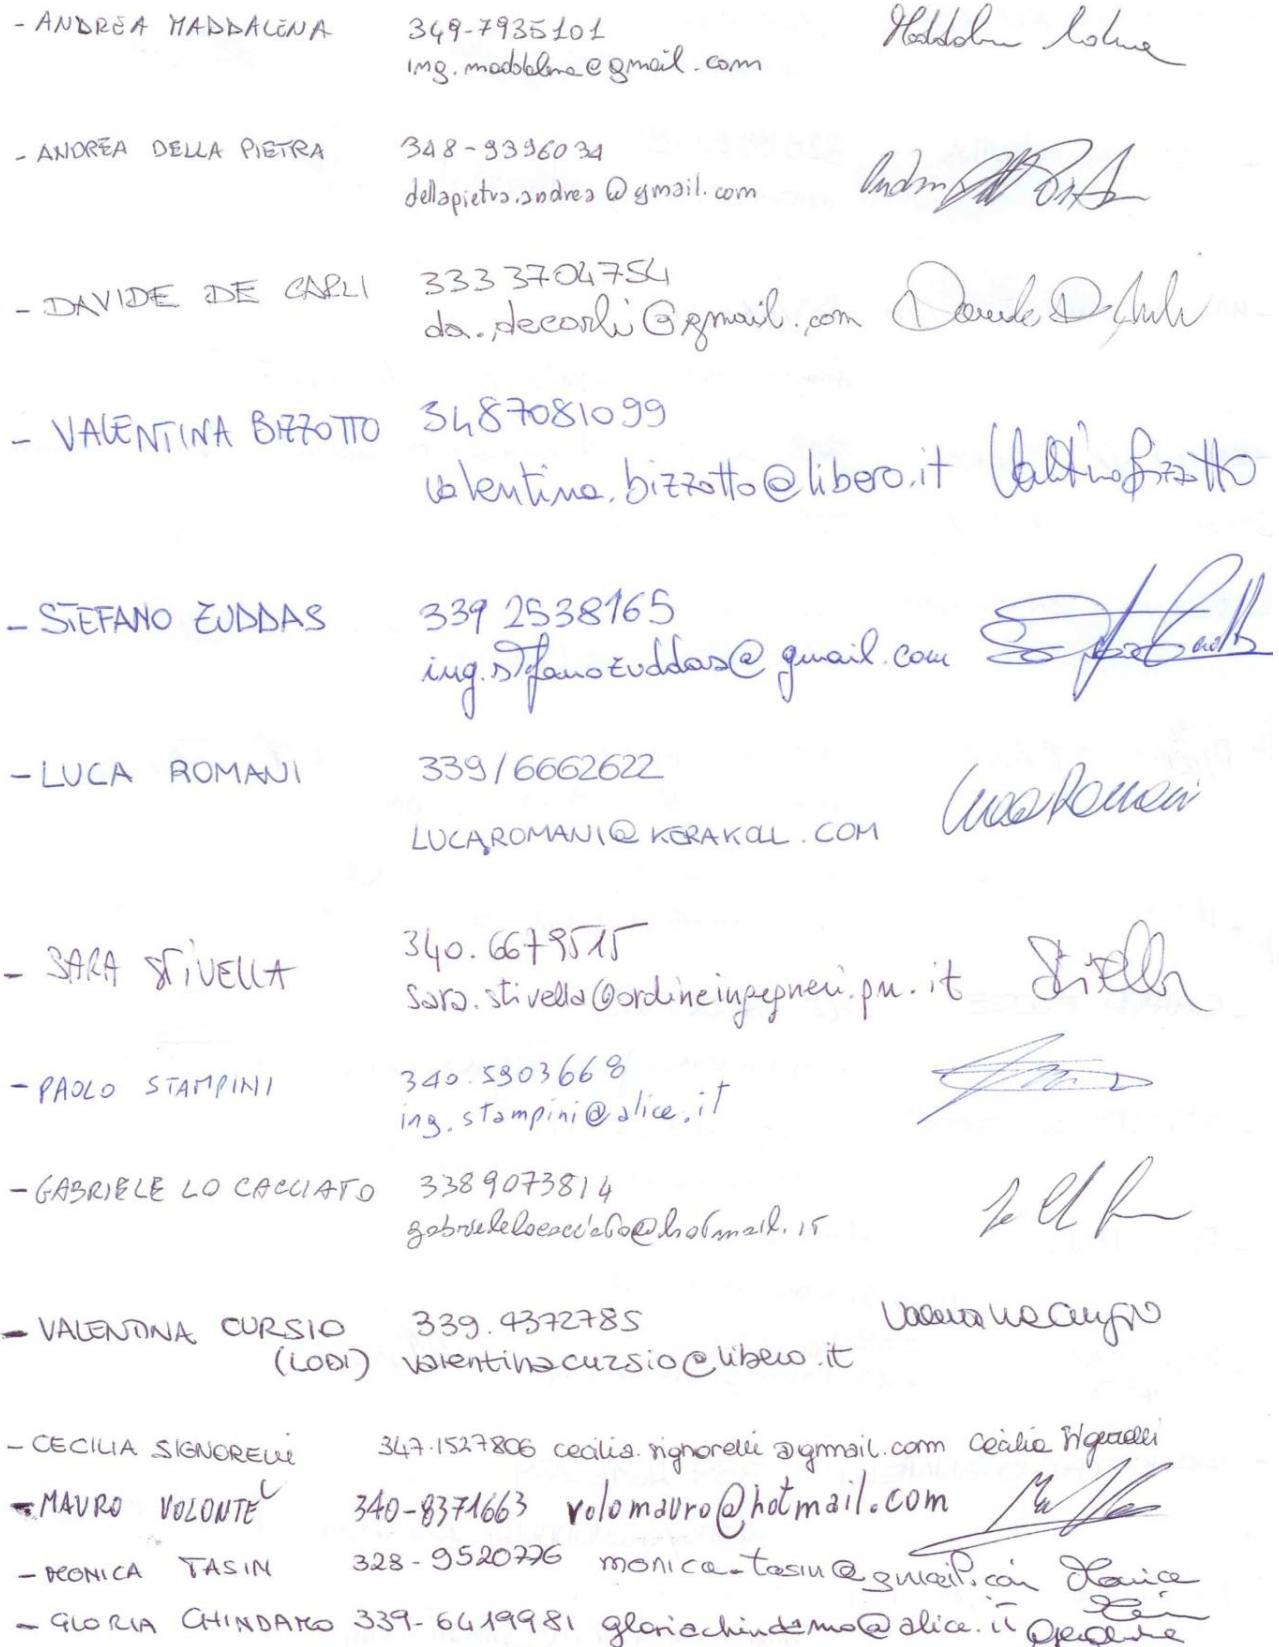 - ANDREA MADDALENA 349-7935101
ing.maddalena@gmail.com
- ANDREA DELLA PIETRA 348-9396034
dellapietra.andrea@gmail.com
- DAVIDE DE CARLI 333 3704754
da.decarli@gmail.com
- VALENTINA BIZZOTTO 3487081099
valentina.bizzotto@libero.it Valentina Bizzotto
- STEFANO ZUDDAS 339 2538165
ing.stefanozuddas@gmail.com
- LUCA ROMANI 339/6662622 Luca Romani
LUCAROMANI@KERAKOLL.COM
- SARA STIVELLA 340.6679515 Stivella
sara.stivella@ordineingegneri.pn.it
- PAOLO STAMPINI 340.5903668
ing.stampini@alice.it
- GABRIELE LO CACCIATO 3389073814
gabrielelocacciato@hotmail.it
- VALENTINA CURSIO 339.4372785
(LODI) valentinacursio@libero.it
- CECILIA SIGNORELLI 347.1527806 cecilia.signorelli@gmail.com Cecilia Signorelli
- MAURO VOLONTE' 340-8371663 volomauro@hotmail.com
- MONICA TASIN 328-9520776 monica-tasin@gmail.com Monica
- GLORIA CHINDAMO 339-6419981 gloriachindamo@alice.it